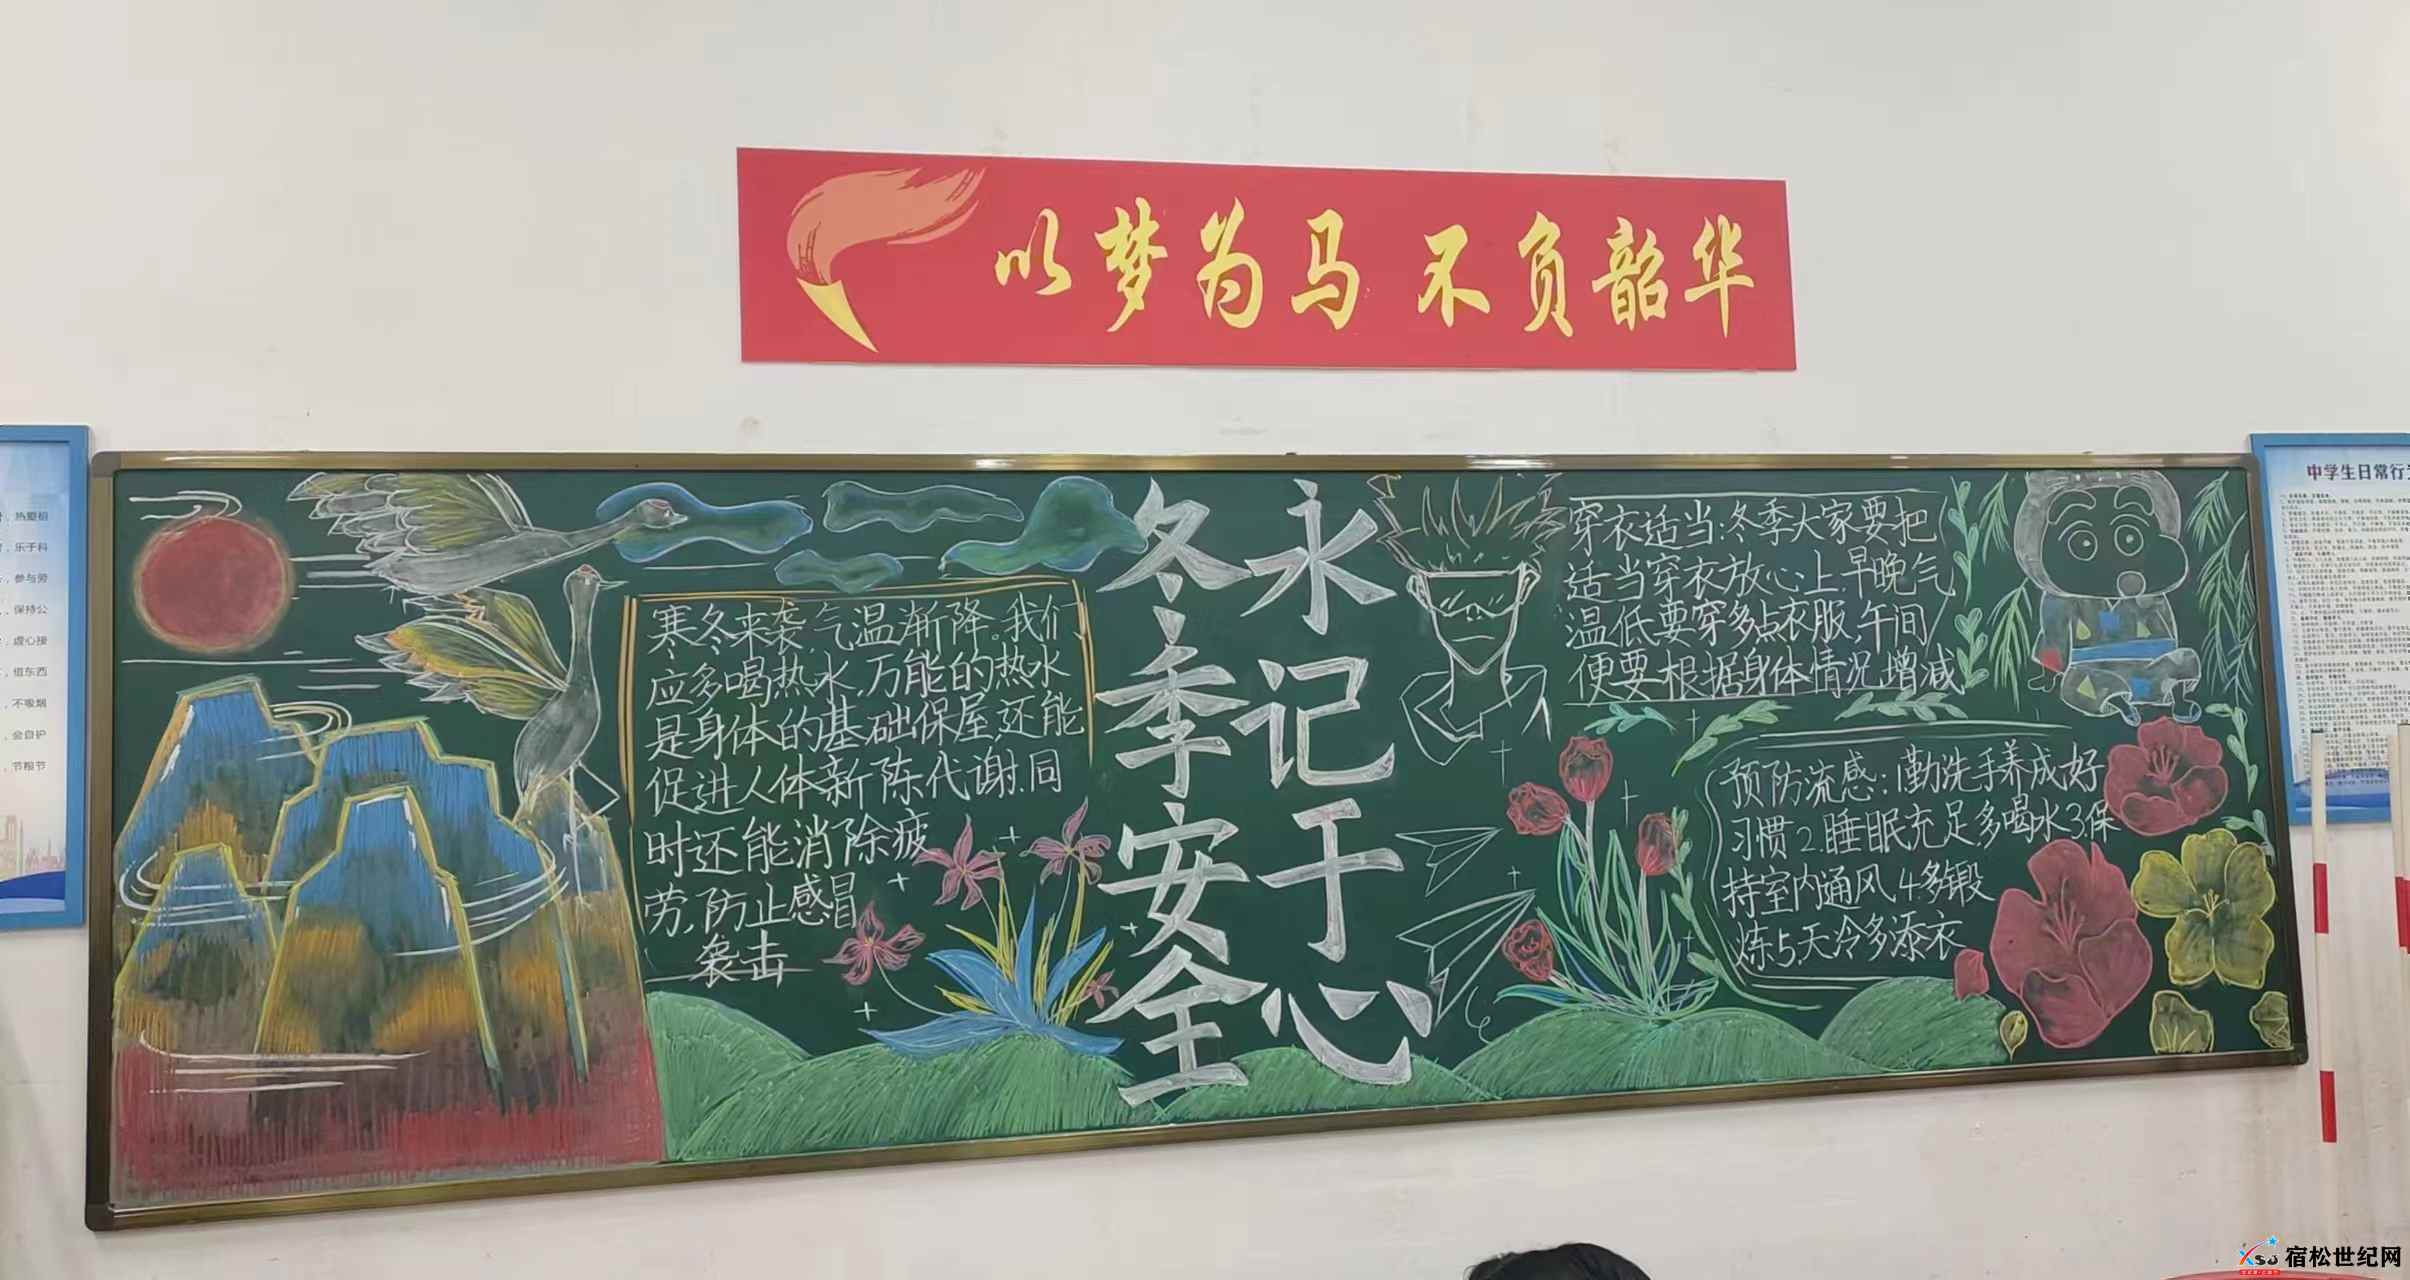 以梦为马 不负韶华
热爱祖
乐于科
参与劳
保持公
虚心接
借东西
不吸烟
会自护
节粮节
寒冬来袭,气温渐降。我们
应多喝热水,万能的热水
是身体的基础保屋,还能
促进人体新陈代谢.同
时还能消除疲
劳,防止感冒
袭击
冬季安全
永记于心
穿衣适当:冬季大家要把
适当穿衣放心上.早晚气
温低要穿多点衣服,午间
便要根据身体情况增减
预防流感:1勤洗手养成好
习惯2.睡眠充足,多喝水3.保
持室内通风4.多锻
炼5.天冷多添衣
中学生日常行
XSJ 宿松世纪网